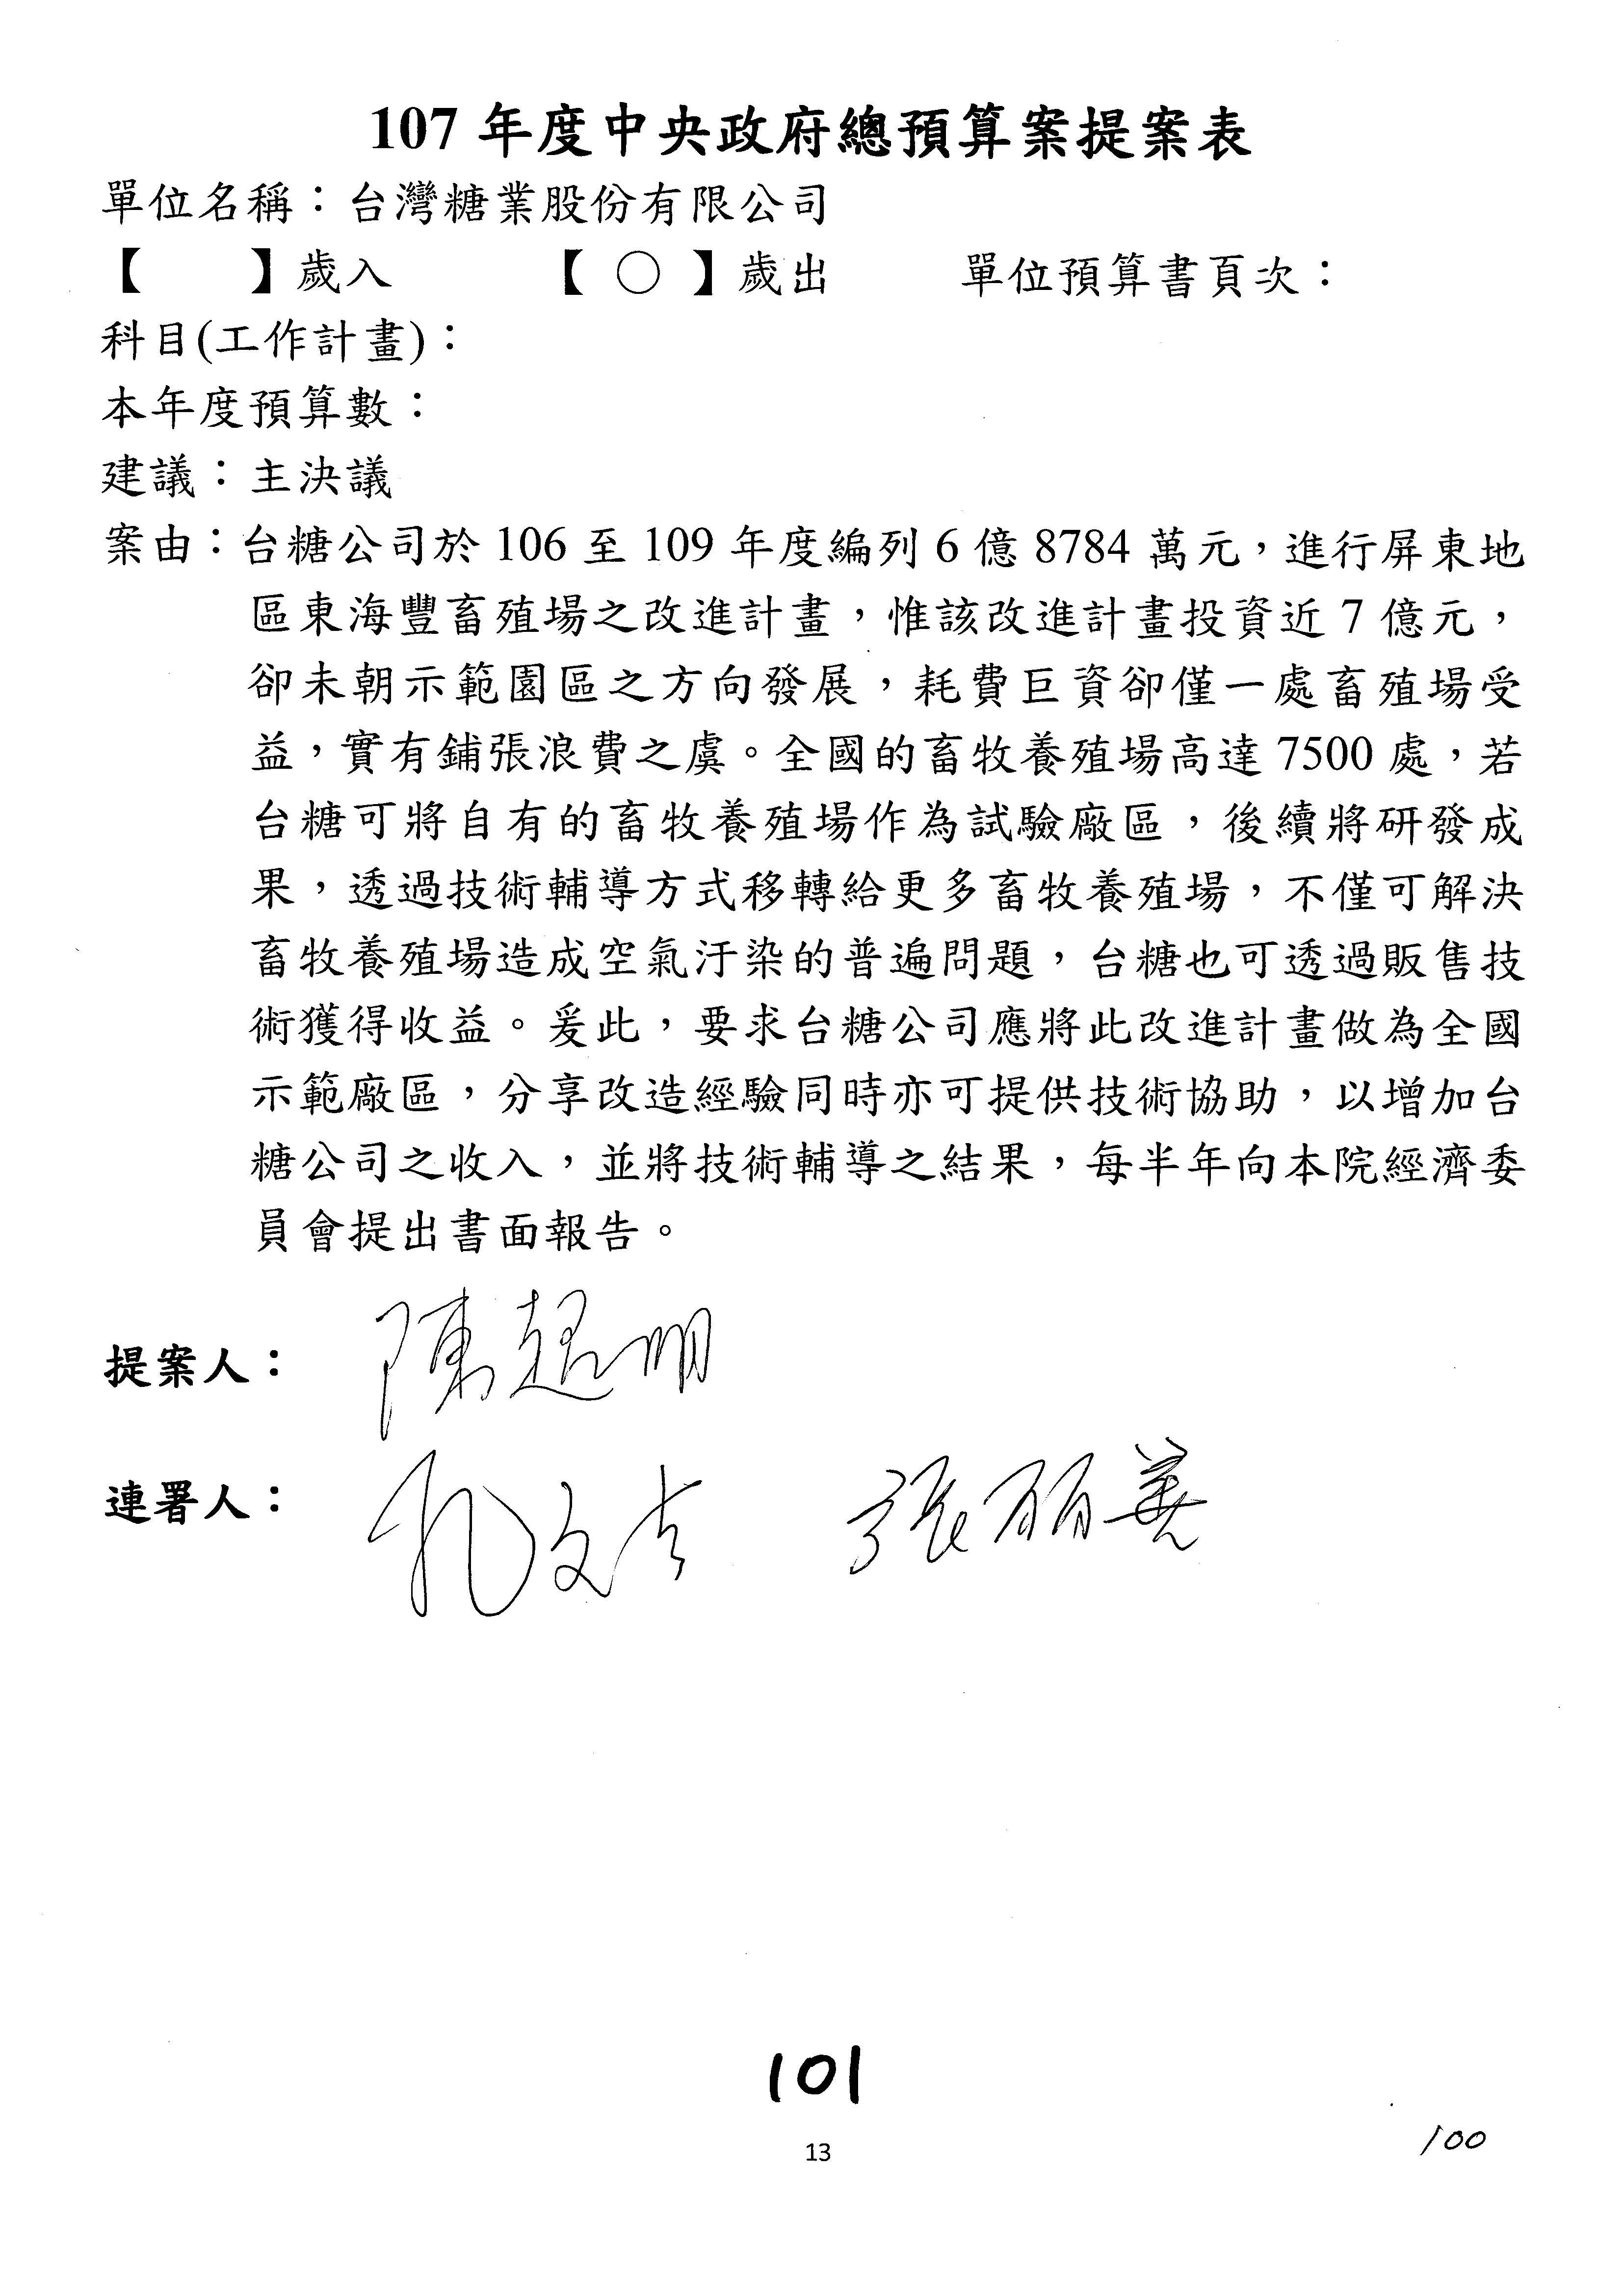 107 年度中央政府總預算案提案表
單位名稱：台灣糖業股份有限公司
【　　】歲入　　　【 ○ 】歲出　　　單位預算書頁次：
科目(工作計畫)：
本年度預算數：
建議：主決議
案由：台糖公司於 106 至 109 年度編列 6 億 8784 萬元，進行屏東地
區東海豐畜殖場之改進計畫，惟該改進計畫投資近 7 億元，
卻未朝示範園區之方向發展，耗費巨資卻僅一處畜殖場受
益，實有鋪張浪費之虞。全國的畜牧養殖場高達 7500 處，若
台糖可將自有的畜牧養殖場作為試驗廠區，後續將研發成
果，透過技術輔導方式移轉給更多畜牧養殖場，不僅可解決
畜牧養殖場造成空氣汙染的普遍問題，台糖也可透過販售技
術獲得收益。爰此，要求台糖公司應將此改進計畫做為全國
示範廠區，分享改造經驗同時亦可提供技術協助，以增加台
糖公司之收入，並將技術輔導之結果，每半年向本院經濟委
員會提出書面報告。
提案人：陳超明
連署人：孔文吉　張麗善
101
13
100